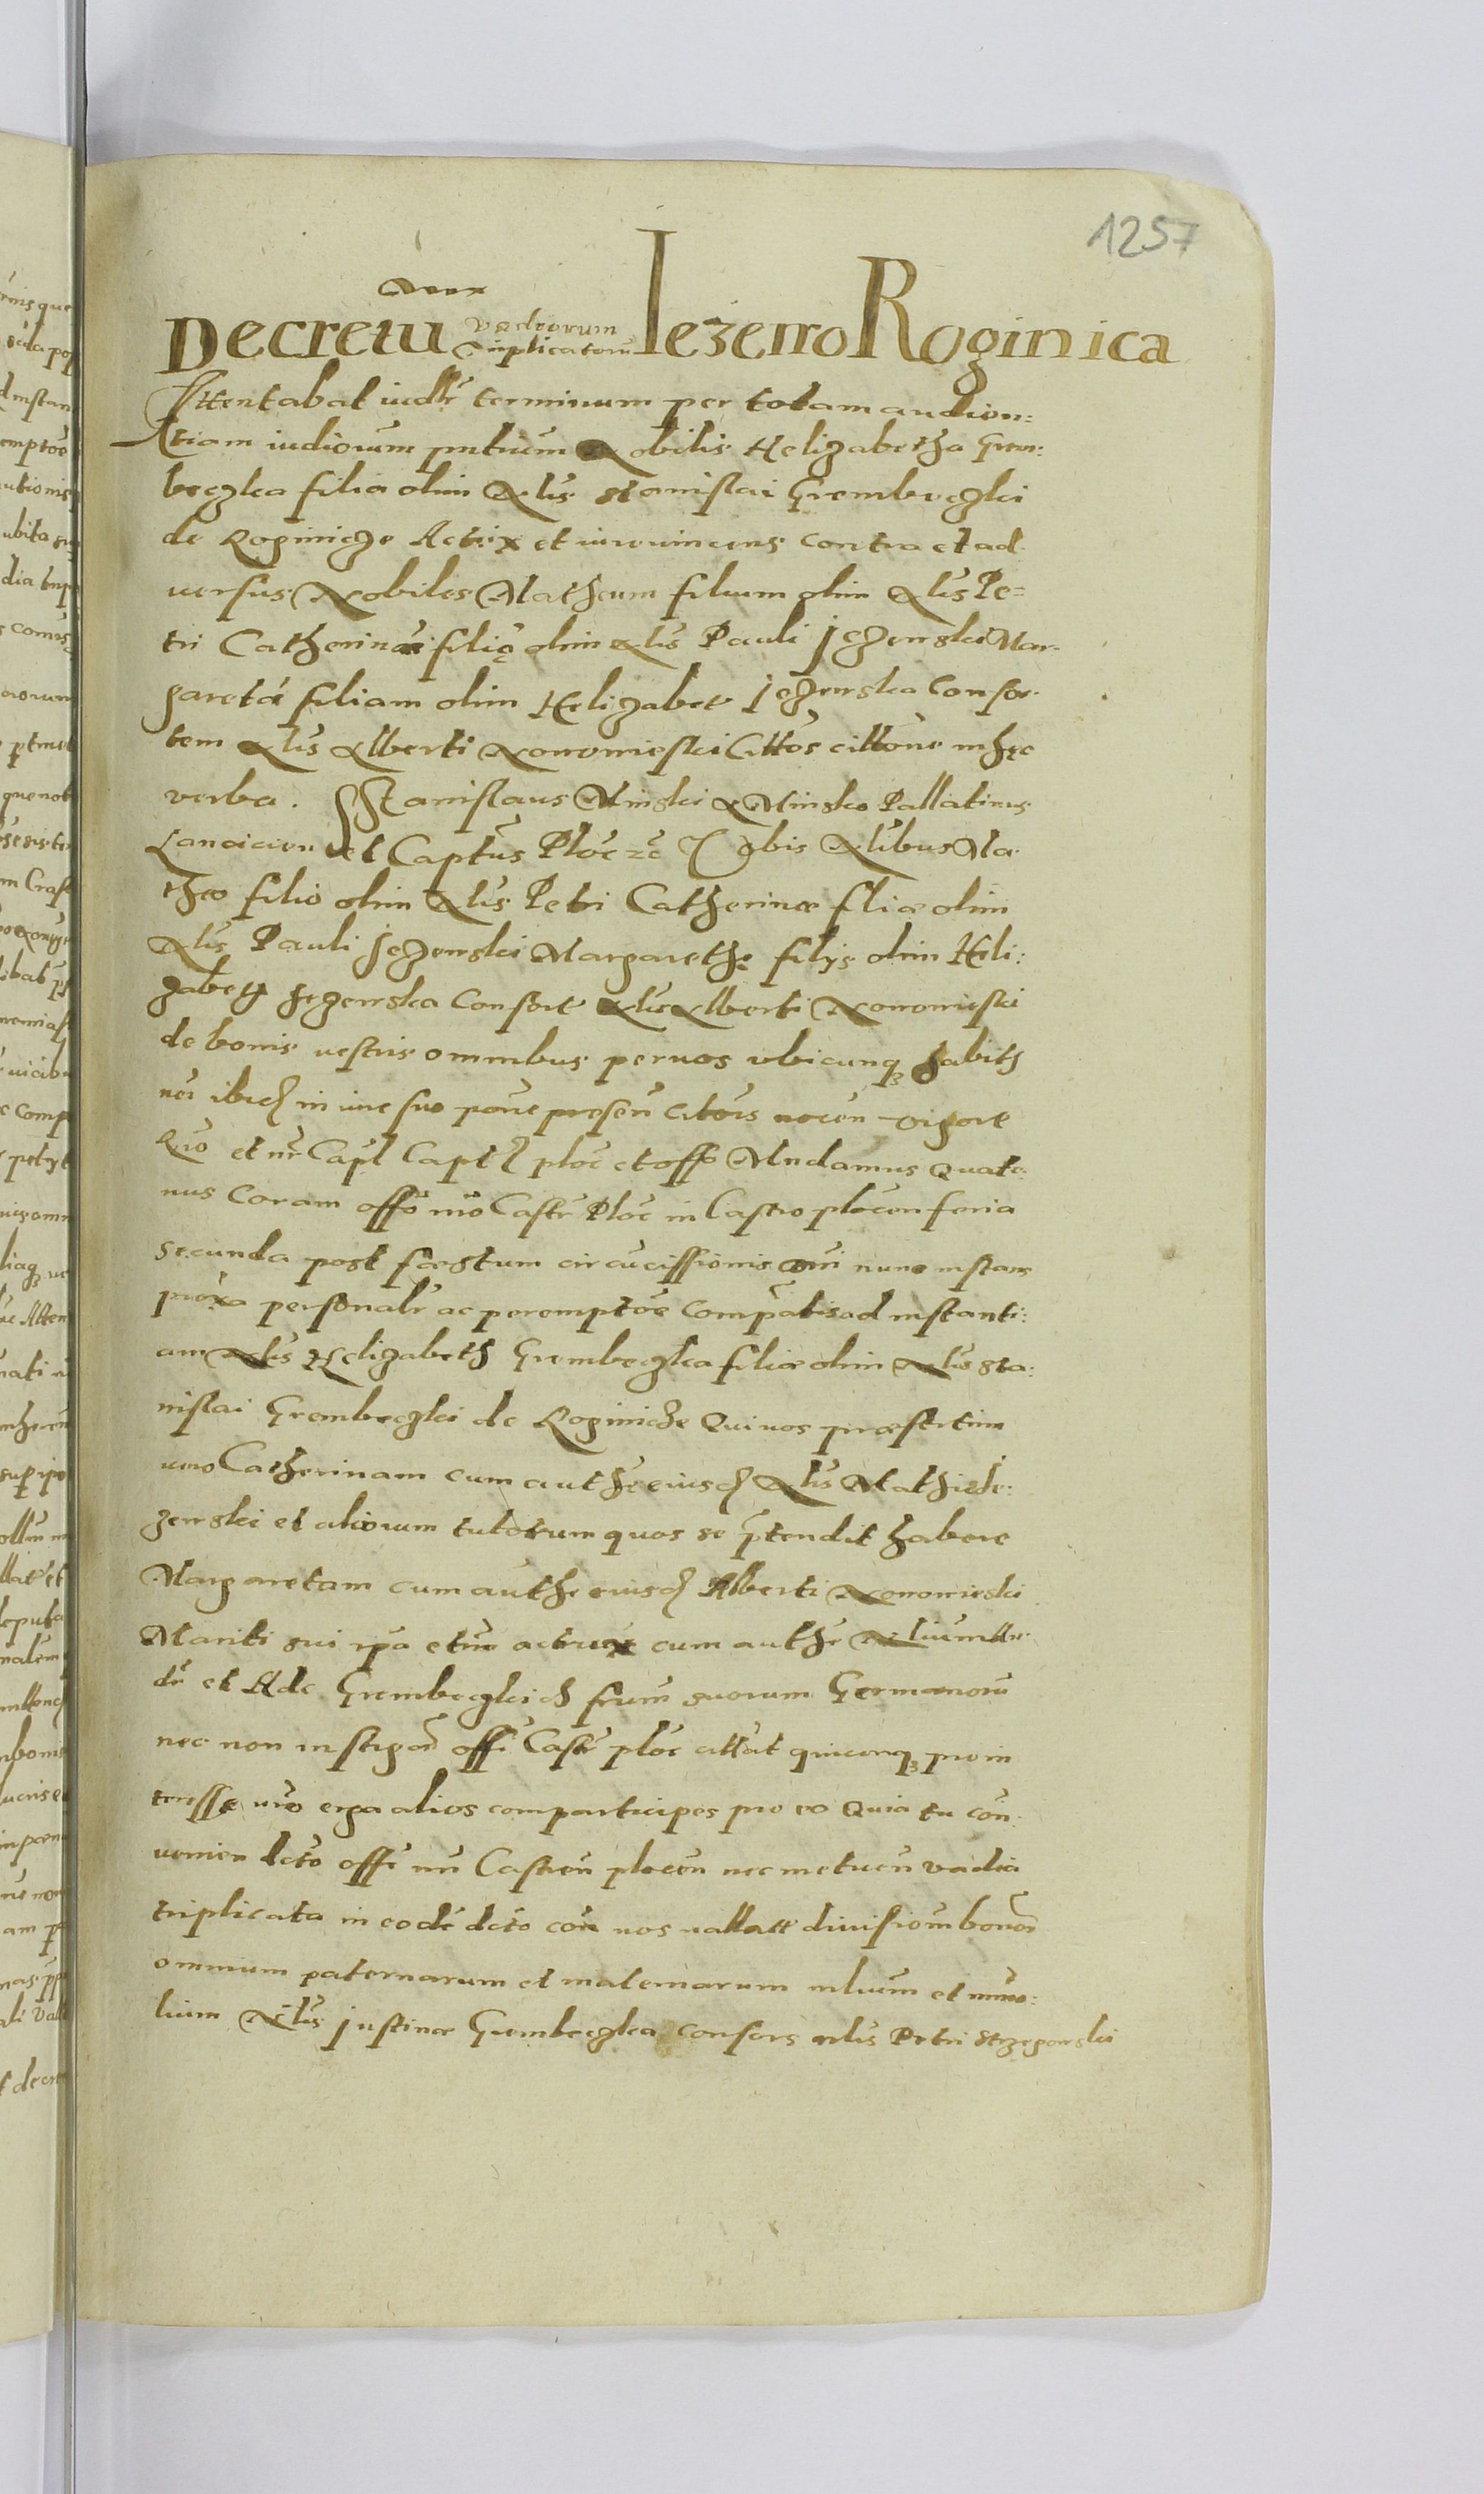 1257
Decretu vadiorum triplicatorum Iezewo Roginica
Attentabat iudlr terminum per totam audien:
tiam iudiorum pntium Nobilis Helizabetha Grem:
beczka filia olim Nlis Stanislai Grembeczki
de Roginicze Actrix et iurevincens contra et ad
versus Nobiles Matheum filium olim Nlis Pe=
tri Catherinae filię olim Nlis Pauli Jezewski Mar-
garetā filiam olim Helizabet Jezewska Consor-
tem Nlis Alberti Nowomieski Cittos cittone in hęc
verba. Stanislaus Minski a Minsko Pallatinus
Lancicien et Captus Ploc zc Vobis Nlibus Ma-
theo filio olim Nlis Petri Catherinae filiae olim
Nlis Pauli Jezewski Margarethę filys olim Heli:
zabeth Jezewska Consort Nlis Alberti Nowomieski
de bonis vestris omnibus per vos vbicunq habitis
ibid in iure suo presen vigore
et Capt ploc et offo Mndamus Quate-
nus Coram offo nro Castr Ploc in Castro plocen feria
secunda post faestum circucissionis nunc instans
proxa personalr ac peremptoe Compatis ad instanti:
am Nlis Helizabeth Grembeczka filiae olim Nlis Sta:
nislai Grembeczki de Roginicze Qui vos praesertim
vero Catherinam cum authe eiusd Nlis Mathi Je:
zewski et aliorum tutorum quos se ptendit habere
Margaretam cum authe eiusd Alberti Nowomieski
Mariti sui ipa etm actrix cum authe Nlium An-
dr et Ade Grembeczkich frum suorum Germanoru
nec non instigan offi Castr ploc cittat quicunq pro in
teresse nro erga alios comparticipes pro eo Quia tu con-
venien lcto offi nri Castren plocen nec metuen vadia
triplicata in eode dcto con vos vallatt divisiom bonor
omnium paternarum et maternarum mluem et immo:
lium Nlis Justinae Grembeczka consors nlis Petri Strzegowski